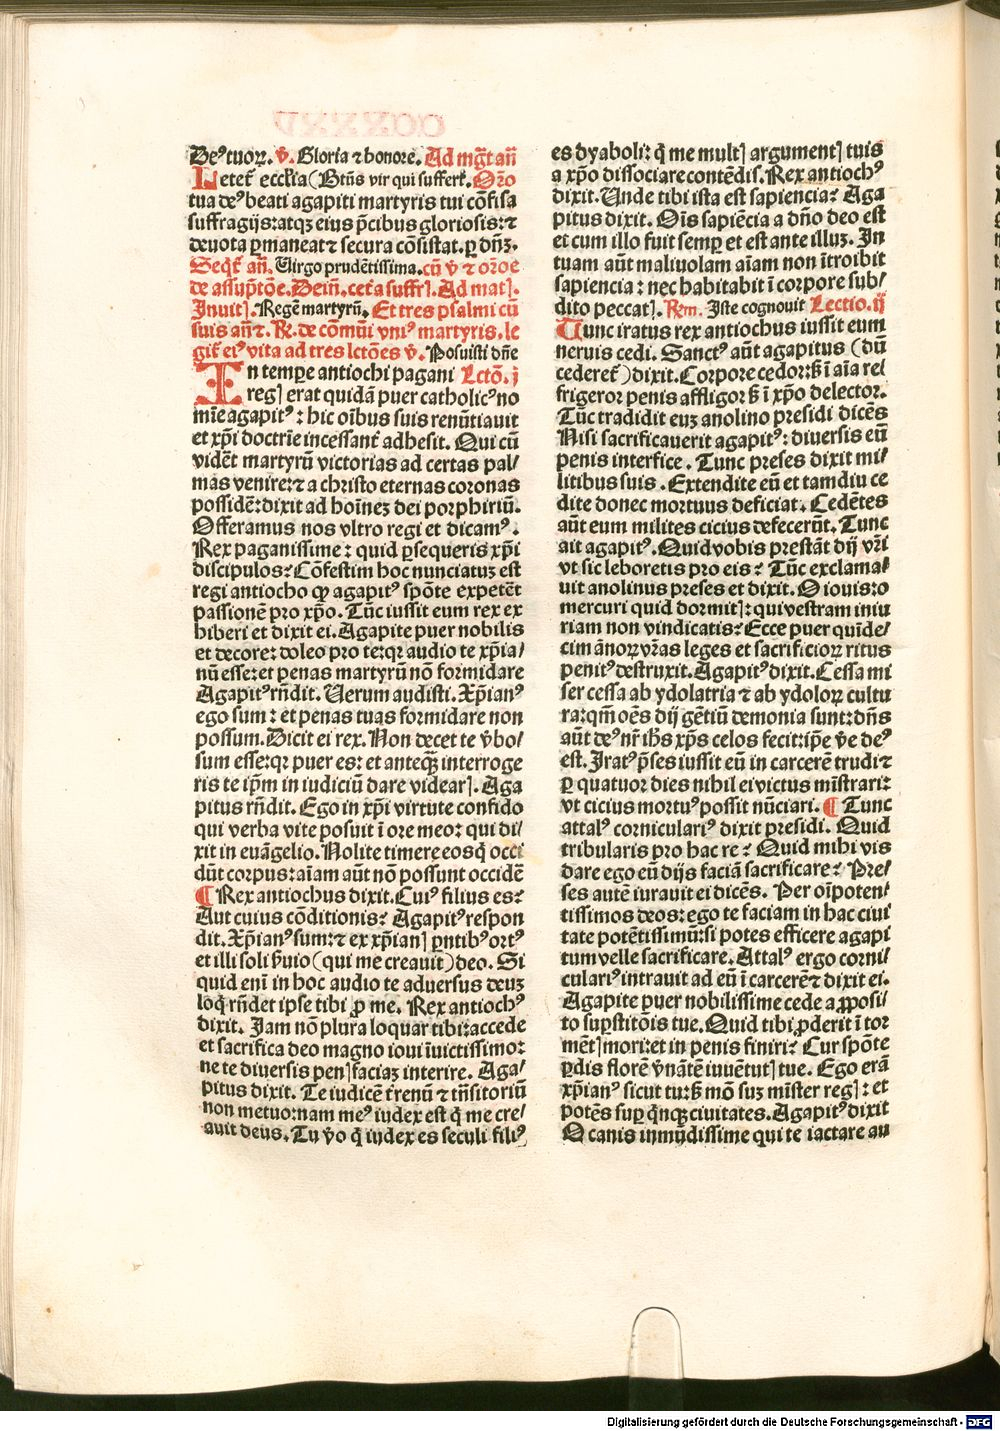 De⁹tuoꝝ. v̄. Gloria ⁊ honore. Ad mg̅t an̅
Letet̅ eccl̅ia (Bt̅us vir qui suffert̅. Or̅o
tua de⁹beati agapiti martyris tui co̅fisa
suffragijs: atqꝫ eius p̅cibus gloriosis: ⁊
deuota ꝑmaneat⁊ secura co̅sistat. ꝑ dn̅ꝫ.
Seqt̅ an̅. Uirgo prude̅tissima. cu̅ v̅ ⁊ or̅oe
de assu̅pt̅oe. Dein̅. cet̅a suffrꝭ. Ad matꝭ.
Inuitꝭ. Rege̅ martyru̅. Et tres psalmi cu̅
suis an̅⁊. ꝶ. de co̅mu̅i vni⁹ martyris. le
git̅ ei⁹ vita ad tres lct̅oes v̅. Posuisti dn̅e
In tempe̅ antiochi pagani Lcto̅. j
regꝭ erat quida̅ puer catholic⁹ no
mi̅e agapit⁹: hic oi̅bus suis renu̅tiauit
et xp̅i doctri̅e incessant̅ adhesit. Qui cu̅
vide̅t martyru̅ victorias ad certas pal/
mas venire: ⁊ a christo eternas coronas
posside̅: dixit ad hoi̅neꝫ dei porphiriu̅.
Offeramus nos vltro regi et dicam⁹.
Rex paganissime: quid ꝑsequeris xp̅i
discipulos: Co̅festim hoc nunciatuꝫ est
regi antiocho ꝙ agapit⁹ spo̅te expete̅t
passione̅ pro xp̅o. Tu̅c iussit eum rex ex
hiberi et dixit ei. Agapite puer nobilis
et decore: doleo pro te: qꝛ audio te xp̅ia/
nu̅ esse: et penas martyru̅ no̅ formidare
Agapit⁹rn̅dit. Uerum audisti. Xp̅ian⁹
ego sum: et penas tuas formidare non
possum. Dicit ei rex. Non decet te v̅bo/
sum esse: qꝛ puer es: et anteqꝫ̅ interroge
ris te ip̅m in iudiciu̅ dare videarꝭ. Aga
pitus rn̅dit. Ego in xp̅i virtute confido
qui verba vite posuit i̅ ore meo: qui di/
xit in eua̅gelio. Nolite timere eos q̅ occi
du̅t corpus: ai̅am au̅t no̅ possunt occide̅
¶ Rex antiochus dixit. Cui⁹ filius es:
Aut cuius co̅ditionis: Agapit⁹ respon
dit. Xp̅ian⁹ sum: ⁊ ex xp̅ianꝭ pn̅tib⁹ ort⁹
et illi soli s̅uio (qui me creauit) deo. Si
quid eni̅ in hoc audio te aduersus deuꝫ
loq̅ rn̅det ipse tibi ꝓ me. Rex antioch⁹
dixit. Jam no̅ plura loquar tibi: accede
et sacrifica deo magno ioui i̅uictissimo:
ne te diuersis penꝭ faciaꝫ interire. Aga/
pitus dixit. Te iudice̅ t̅renu̅ ⁊ tn̅sitoriu̅
non metuo: nam me⁹ iudex est q̅ me cre/
auit deus. Tu v̅o q̅ iudex es seculi fili⁹
es dyaboli: q̅ me multꝭ argumentꝭ tuis
a xp̅o dissociare conte̅dis. Rex antioch⁹
dixit. Unde tibi ista est sapiencia: Aga
pitus dixit. Oi̅s sapie̅cia a dn̅o deo est
et cum illo fuit semꝑ et est ante illuꝫ. In
tuam au̅t maliuolam ai̅am non i̅troibit
sapiencia: nec habitabit i̅ corpore sub/
dito peccatꝭ. ꝶm. Iste cognouit Lectio. ij
Tunc iratus rex antiochus iussit eum
neruis cedi. Sanct⁹ au̅t agapitus (du̅
cederet̅) dixit. Corpore cedor: s̅ i̅ ai̅a ref
frigeror: penis affligor s̅ i̅ xp̅o delector.
Tu̅c tradidit euꝫ anolino presidi dice̅s
Nisi sacrificauerit agapit⁹: diuersis eu̅
penis interfice. Tunc preses dixit mi/
litibus suis. Extendite eu̅ et tamdiu ce
dite donec mortuus deficiat. Cede̅tes
au̅t eum milites cicius defeceru̅t. Tunc
ait agapit⁹. Quid vobis presta̅t dij vr̅i
vt sic leboretis pro eis: Tu̅c exclama/
uit anolinus preses et dixit. O iouis: o
mercuri quid dormitꝭ: qui vestram iniu
riam non vindicatis: Ecce puer qui̅de/
cim anoꝝ vr̅as leges et sacrificioꝝ ritus
penit⁹ destruxit. Agapit⁹ dixit. Cessa mi
ser cessa ab ydolatria ⁊ ab ydoloꝝ cultu
ra: qm̅ oe̅s dij ge̅tiu̅ demonia sunt: dn̅s
au̅t de⁹ nr̅ ihs̅ xp̅s celos fecit: ip̅e v̅e de⁹
est. Irat⁹ p̅ses iussit eu̅ in carcere̅ trudi ⁊
ꝑ quatuor dies nihil ei victus mi̅strari:
vt cicius mortu⁹ possit nu̅ciari. ¶ Tunc
attal⁹ corniculari⁹ dixit presidi. Quid
tribularis pro hac re: Quid mihi vis
dare ego eu̅ dijs facia̅ sacrificare: Pre/
ses aute̅ iurauit ei dice̅s. Per oi̅poten/
tissimos deos: ego te faciam in hac ciui
tate pote̅tissimu̅: si potes efficere agapi
tum velle sacrificare. Attal⁹ ergo corni/
culari⁹ intrauit ad eu̅ i̅ carcere̅ ⁊ dixit ei.
Agapite puer nobilissime cede a ꝓposi/
to suꝑstito̅is tue. Quid tibi ꝓderit i̅ tor
me̅tꝭ mori: et in penis finiri: Cur spo̅te
ꝑdis flore̅ v̅nante̅ iuue̅tutꝭ tue. Ego era̅
xp̅ian⁹ sicut tu: s̅ mo̅ suꝫ mi̅ster regꝭ: et
pote̅s suꝑ q̅nqꝫ ciuitates. Agapit⁹ dixit
O canis inmu̅dissime qui te iactare au
Digitalisierung gefördert durch die Deutsche Forschungsgemeinschaft - DFG